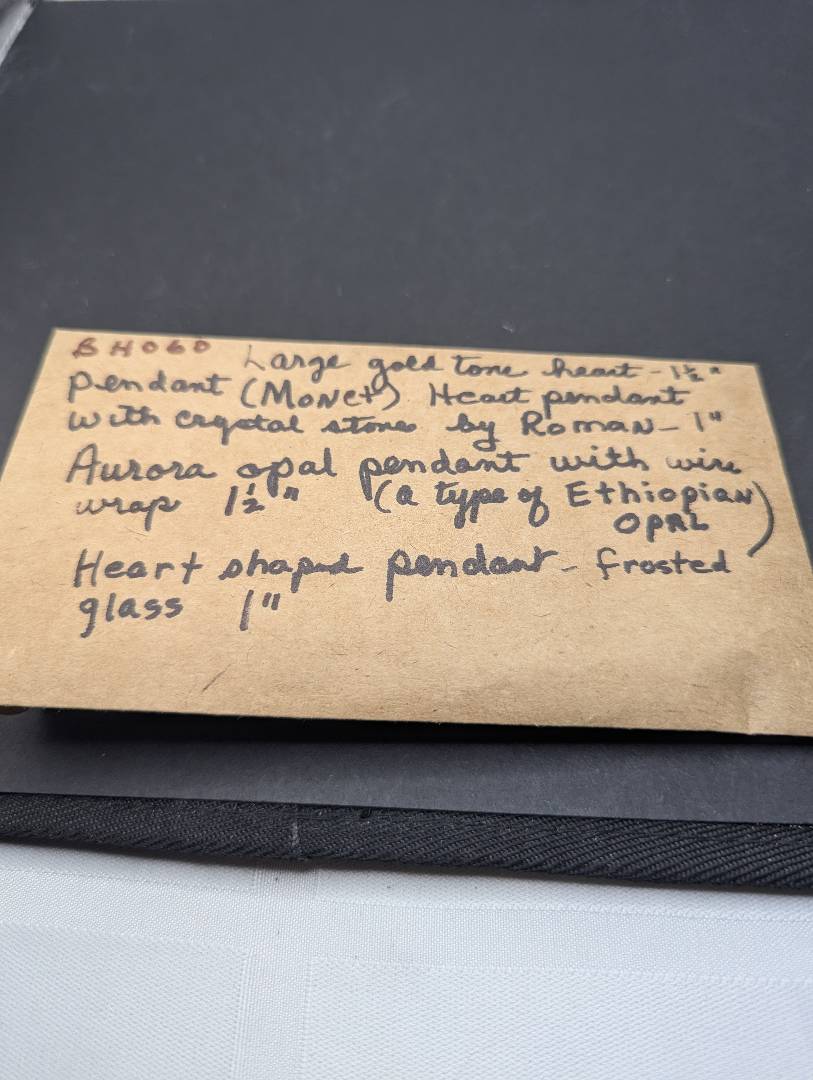 BH060 Large gold tone heart - 1½"
Pendant (Monet) Heart pendant
with crystal stones by Roman - 1"
Aurora opal pendant with wire
wrap 1½" (a type of Ethiopian
OPAL)
Heart shaped pendant - frosted
glass 1"